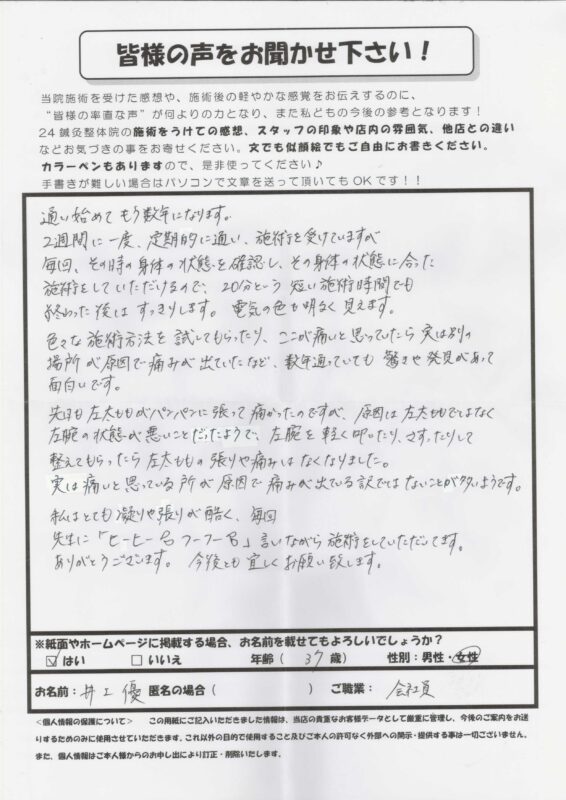 皆様の声をお聞かせ下さい！
当院施術を受けた感想や、施術後の軽やかな感覚をお伝えするのに、
“皆様の率直な声”が何よりの力となり、また私どもの今後の参考となります！
24鍼灸整体院の施術をうけての感想、スタッフの印象や店内の雰囲気、他店との違い
などお気づきの事をお寄せください。文でも似顔絵でもご自由にお書きください。
カラーペンもありますので、是非使ってください♪
手書きが難しい場合はパソコンで文章を送って頂いてもＯＫです！！
通い始めてもう数年になります。
2週間に一度、定期的に通い、施術を受けていますが
毎回、その時の身体の状態を確認し、その身体の状態に合った
施術をしていただけるので、20分という短い施術時間でも
終わった後はすっきりします。電気の色も明るく見えます。
色々な施術方法を試してもらったり、ここが痛いと思っていたら実は別の
場所が原因で痛みが出ていたなど、数年通っていても驚きや発見があって
面白いです。
先日も左太ももがパンパンに張って痛かったのですが、原因は左太ももではなく
左腕の状態が悪いことだったようで、左腕を軽く叩いたり、さすったりして
整えてもらったら左太ももの張りや痛みはなくなりました。
実は痛いと思っている所が原因で痛みが出ている訳ではないことが多いようです。
私はとても凝りや張りが酷く、毎回
先生に「ヒーヒー フーフー」言いながら施術をしていただいてます。
ありがとうございます。今後とも宜しくお願い致します。
※紙面やホームページに掲載する場合、お名前を載せてもよろしいでしょうか？
☑はい □いいえ 年齢（ 37 歳） 性別：男性・女性
お名前：井上 優 匿名の場合（ ） ご職業： 会社員
＜個人情報の保護について＞ この用紙にご記入いただきました情報は、当店の貴重なお客様データとして厳重に管理し、今後のご案内をお送
りするためのみに使用させていただきます。これ以外の目的で使用すること及びご本人の許可なく外部への開示・提供する事は一切ございません。
また、個人情報はご本人様からのお申し出により訂正・削除いたします。